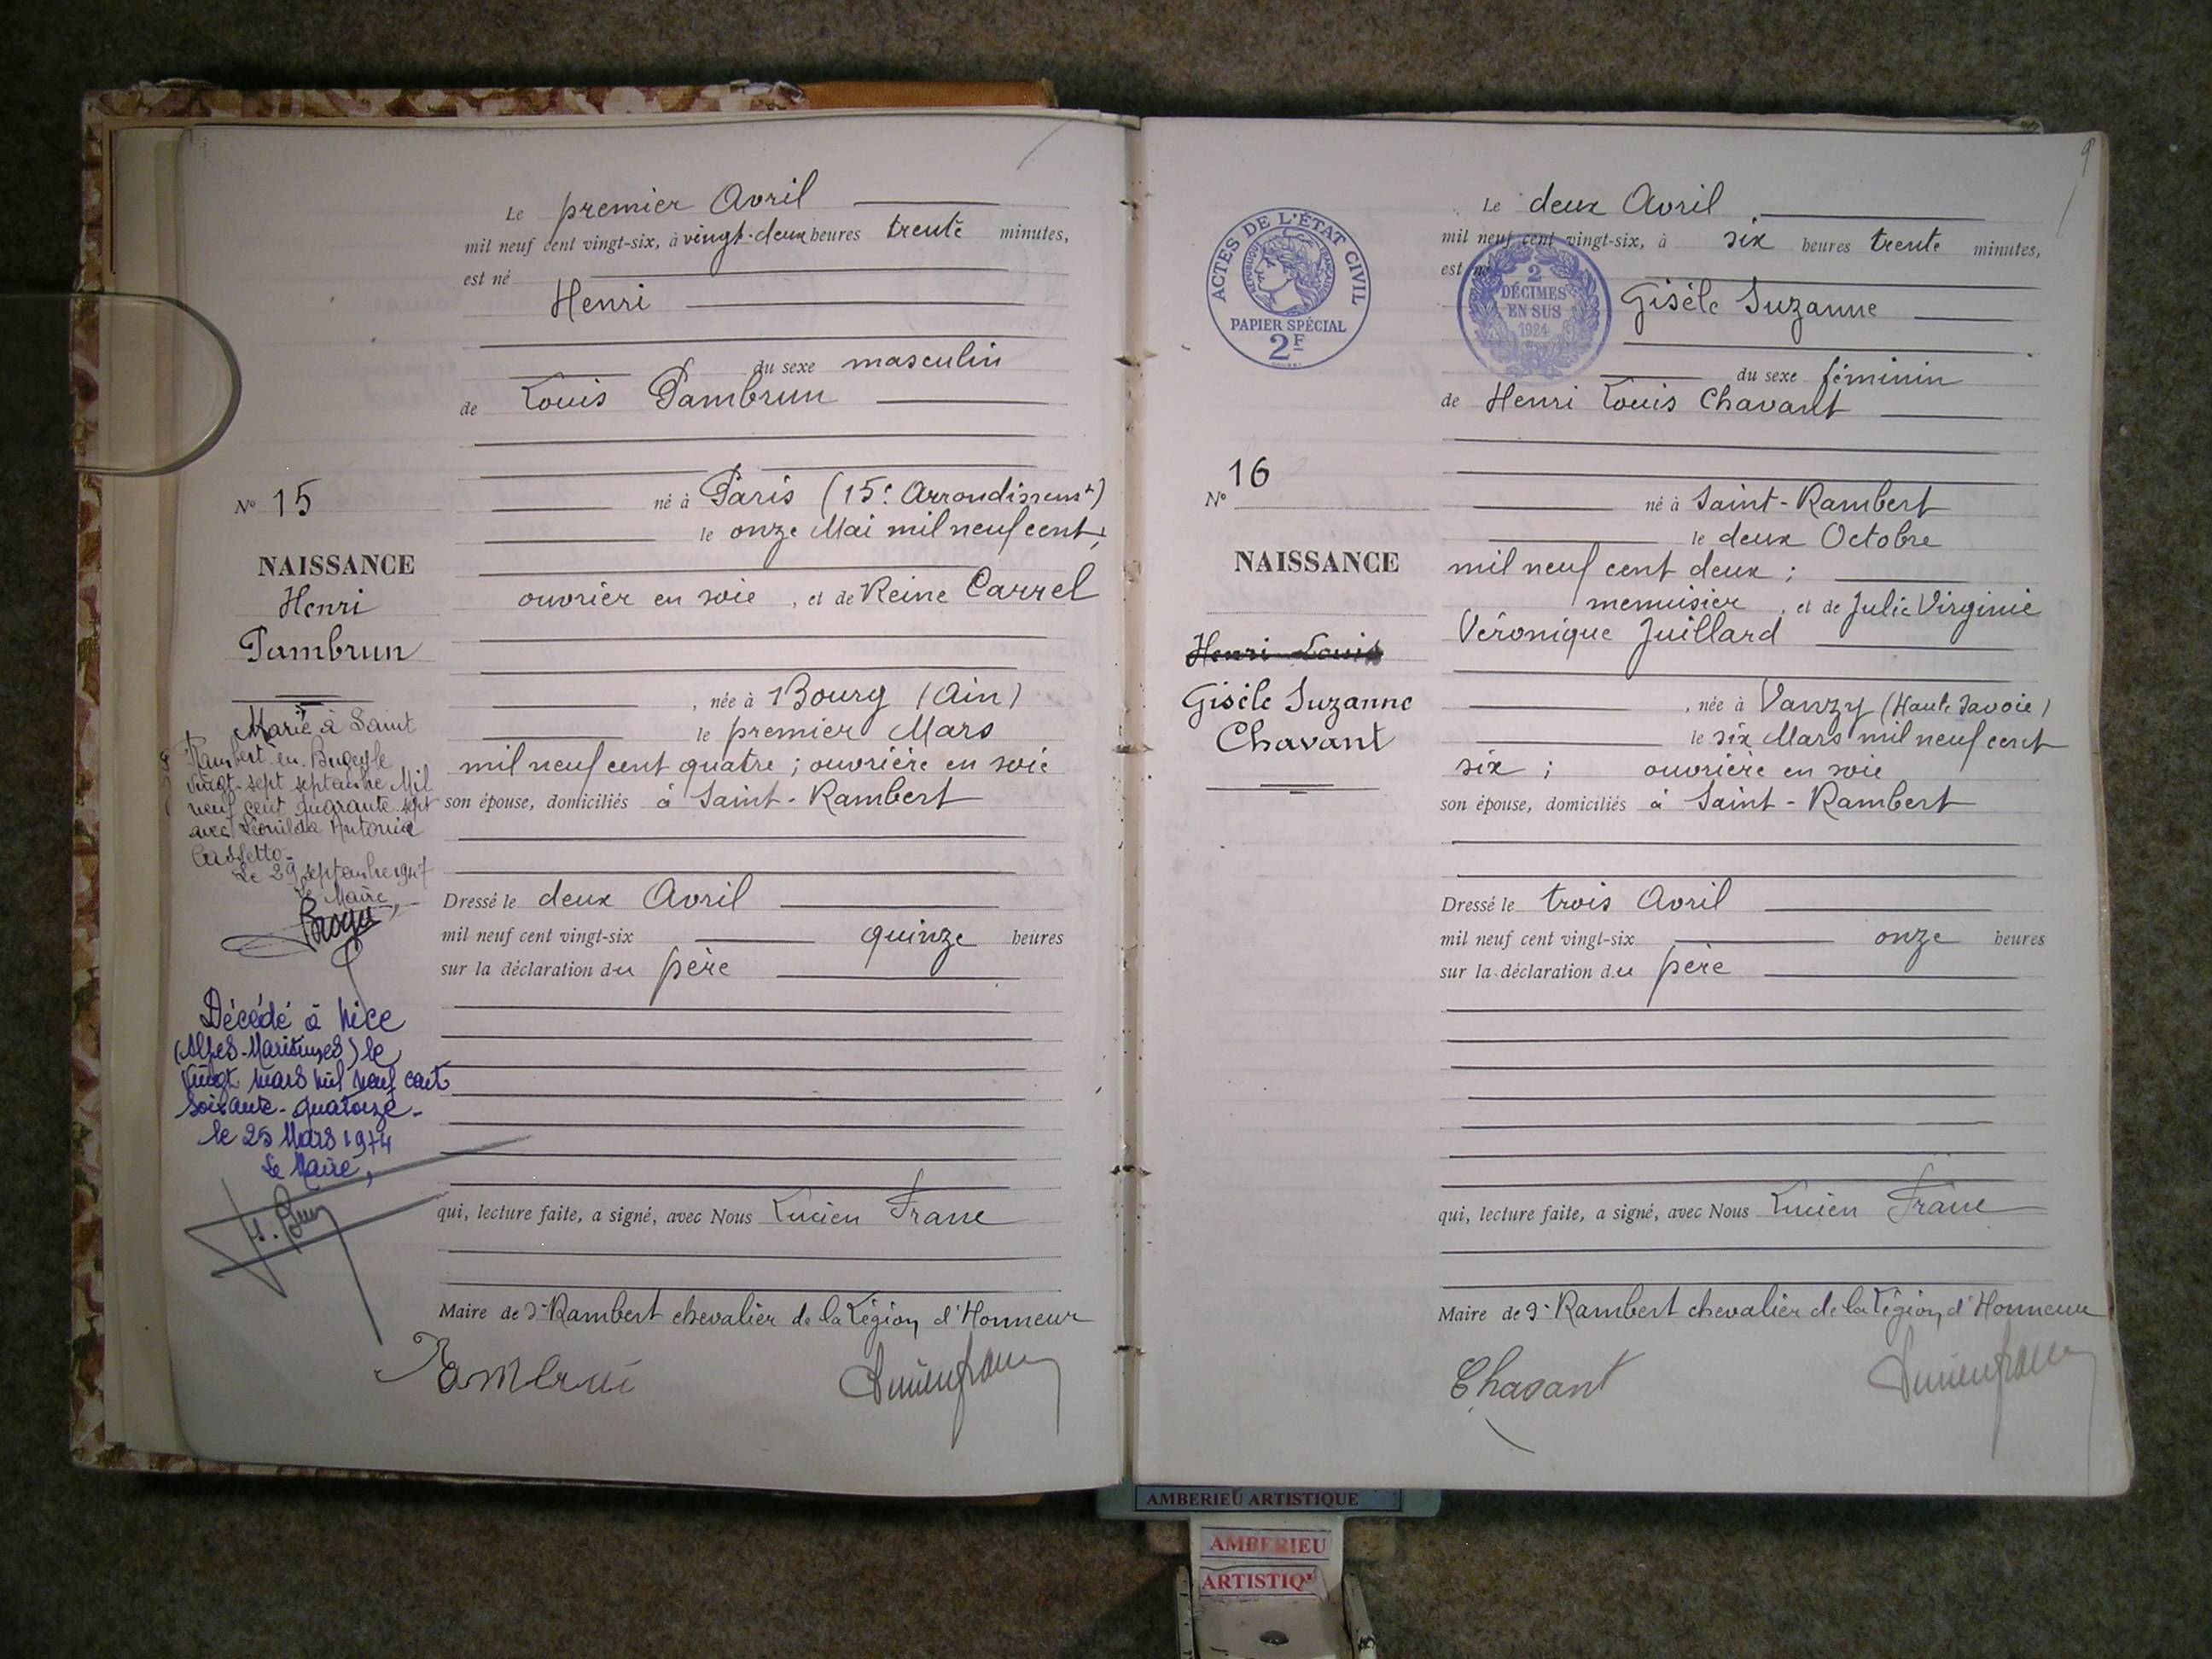 Le premier Avril
mil neuf cent vingt-six, à vingt-deux heures trente minutes,
est né
Henri
du sexe masculin
de Louis Pambrun
né à Paris (15e Arrondissemt)
le onze Mai mil neuf cent,
ouvrier en soie, et de Reine Carrel
, née à Bourg (Ain)
le premier Mars
mil neuf cent quatre ; ouvrière en soie
son épouse, domiciliés à Saint-Rambert
Dressé le deux Avril
mil neuf cent vingt-six quinze heures
sur la déclaration du père
qui, lecture faite, a signé, avec Nous Lucien Franc
Maire de St Rambert chevalier de la Légion d'Honneur
N° 15
NAISSANCE
Henri
Pambrun
Marié à Saint
Rambert-en-Bugey le
vingt-sept septembre Mil
neuf cent quarante sept
avec Léonilda Antonia
Cassetto-
Le 29 septembre 1947
Le Maire,
Décédé à Nice
(Alpes-Maritimes) le
vingt mars mil neuf cent
soixante-quatorze-
le 25 Mars 1974
Le Maire,
9
ACTES DE L'ÉTAT CIVIL
RÉPUBLIQUE FRANÇAISE
PAPIER SPÉCIAL
2F
2
DÉCIMES
EN SUS
1924
Le deux Avril
mil neuf cent vingt-six, à six heures trente minutes,
est né
Gisèle Suzanne
du sexe féminin
de Henri Louis Chavant
né à Saint-Rambert
le deux Octobre
mil neuf cent deux ;
menuisier, et de Julie Virginie
Véronique Juillard
, née à Vanzy (Haute Savoie)
le six Mars mil neuf cent
six ; ouvrière en soie
son épouse, domiciliés à Saint-Rambert
Dressé le trois Avril
mil neuf cent vingt-six onze heures
sur la déclaration du père
qui, lecture faite, a signé, avec Nous Lucien Franc
Maire de St Rambert chevalier de la Légion d'Honneur
Chavant
N° 16
NAISSANCE
Henri Louis
Gisèle Suzanne
Chavant
AMBERIEU ARTISTIQUE
AMBERIEU
ARTISTIQ